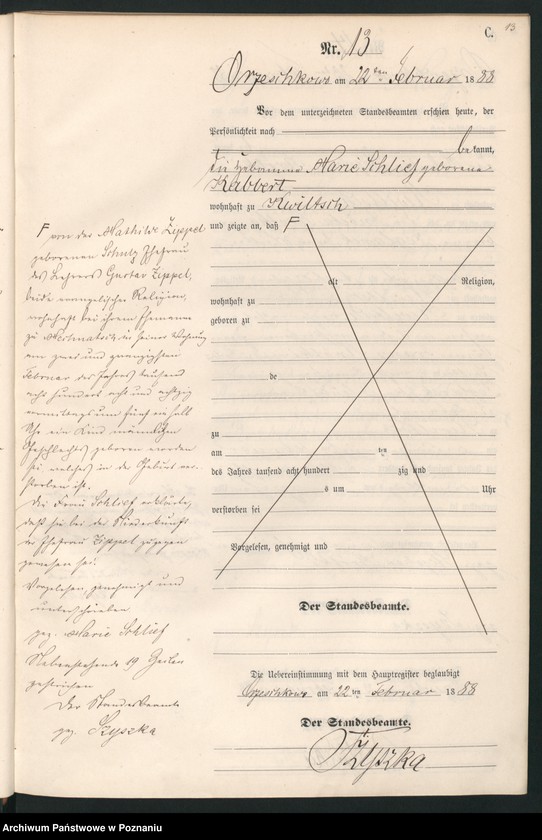 C.
13
Nr. 13
Orzeschkowo am 22ten Februar 1888
Vor dem unterzeichneten Standesbeamten erschien heute, der
Persönlichkeit nach
bekannt,
die Hebamme Marie Schlief geborene
Kabbert
wohnhaft zu Kwiltsch
und zeigte an, daß F
alt Religion,
wohnhaft zu
geboren zu
de
zu
am ten
des Jahres tausend acht hundert zig und
s um Uhr
verstorben sei
Vorgelesen, genehmigt und
Der Standesbeamte.
Die Uebereinstimmung mit dem Hauptregister beglaubigt
Orzeschkowo am 22ten Februar 1888
Der Standesbeamte.
Tzyszka
F von der Mathilde Zippel
geborenen Schulz Ehefrau
des Lehrers Gustav Zippel,
beide evangelischer Religion,
wohnhaft bei ihrem Ehemanne
zu in seiner Wohnung
am zwei und zwanzigsten
Februar des Jahres tausend
acht hundert acht und achtzig
vormittags um fünf ein halb
Uhr ein Kind männlichen
Geschlechts geboren worden
sei, welches in der Geburt ver-
storben ist.
Die Frau Schlief erklärte,
daß sie bei der Niederkunft
der Ehefrau Zippel zugegen
gewesen sei.
Vorgelesen, genehmigt und
unterschrieben
gez. Marie Schlief
Nebenstehende 19 Zeilen
gestrichen
Der Standesbeamte
gez. Tzyszka
Archiwum Państwowe w Poznaniu